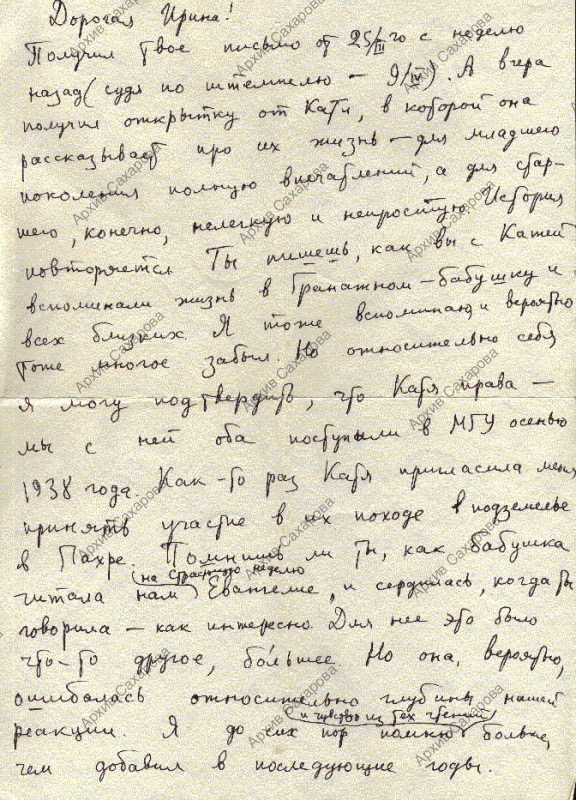 Дорогая Ирина!
Получил твое письмо от 25/III-го с неделю
назад (судя по штемпелю – 9/IV). А вчера
получил открытку от Кати, в которой она
рассказывает про их жизнь – для младшего
поколения полную впечатлений, а для стар-
шего, конечно, нелегкую и непростую. История
повторяется. Ты пишешь, как вы с Катей
вспоминали жизнь в Гранатном – бабушку и
всех близких. Я тоже вспоминаю и вероятно
тоже многое забыл. Но относительно себя
я могу подтвердить, что Катя права –
мы с ней оба поступали в МГУ осенью
1938 года. Как-то раз Катя пригласила меня
принять участие в их походе в подземелье
в Пахре. Помнишь ли ты, как бабушка
на Страстную неделю
читала нам Евангелие, и сердилась, когда ты
говорила – как интересно. Для нее это было
что-то другое, бо́льшее. Но она, вероятно,
ошибалась относительно глубины нашей
реакции. Я до сих пор помню больше,
и чувство из тех чтений
чем добавил в последующие годы.
Архив Сахарова
Архив Сахарова
Архив Сахарова
Архив Сахарова
Архив Сахарова
Архив Сахарова
Архив Сахарова
Архив Сахарова
Архив Сахарова
Архив Сахарова
Архив Сахарова
Архив Сахарова